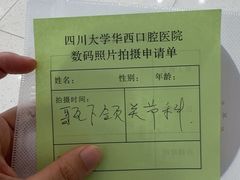 四川大学华西口腔医院
数码照片拍摄申请单
姓名： 性别： 年龄：
拍摄时间：
颞下颌关节科